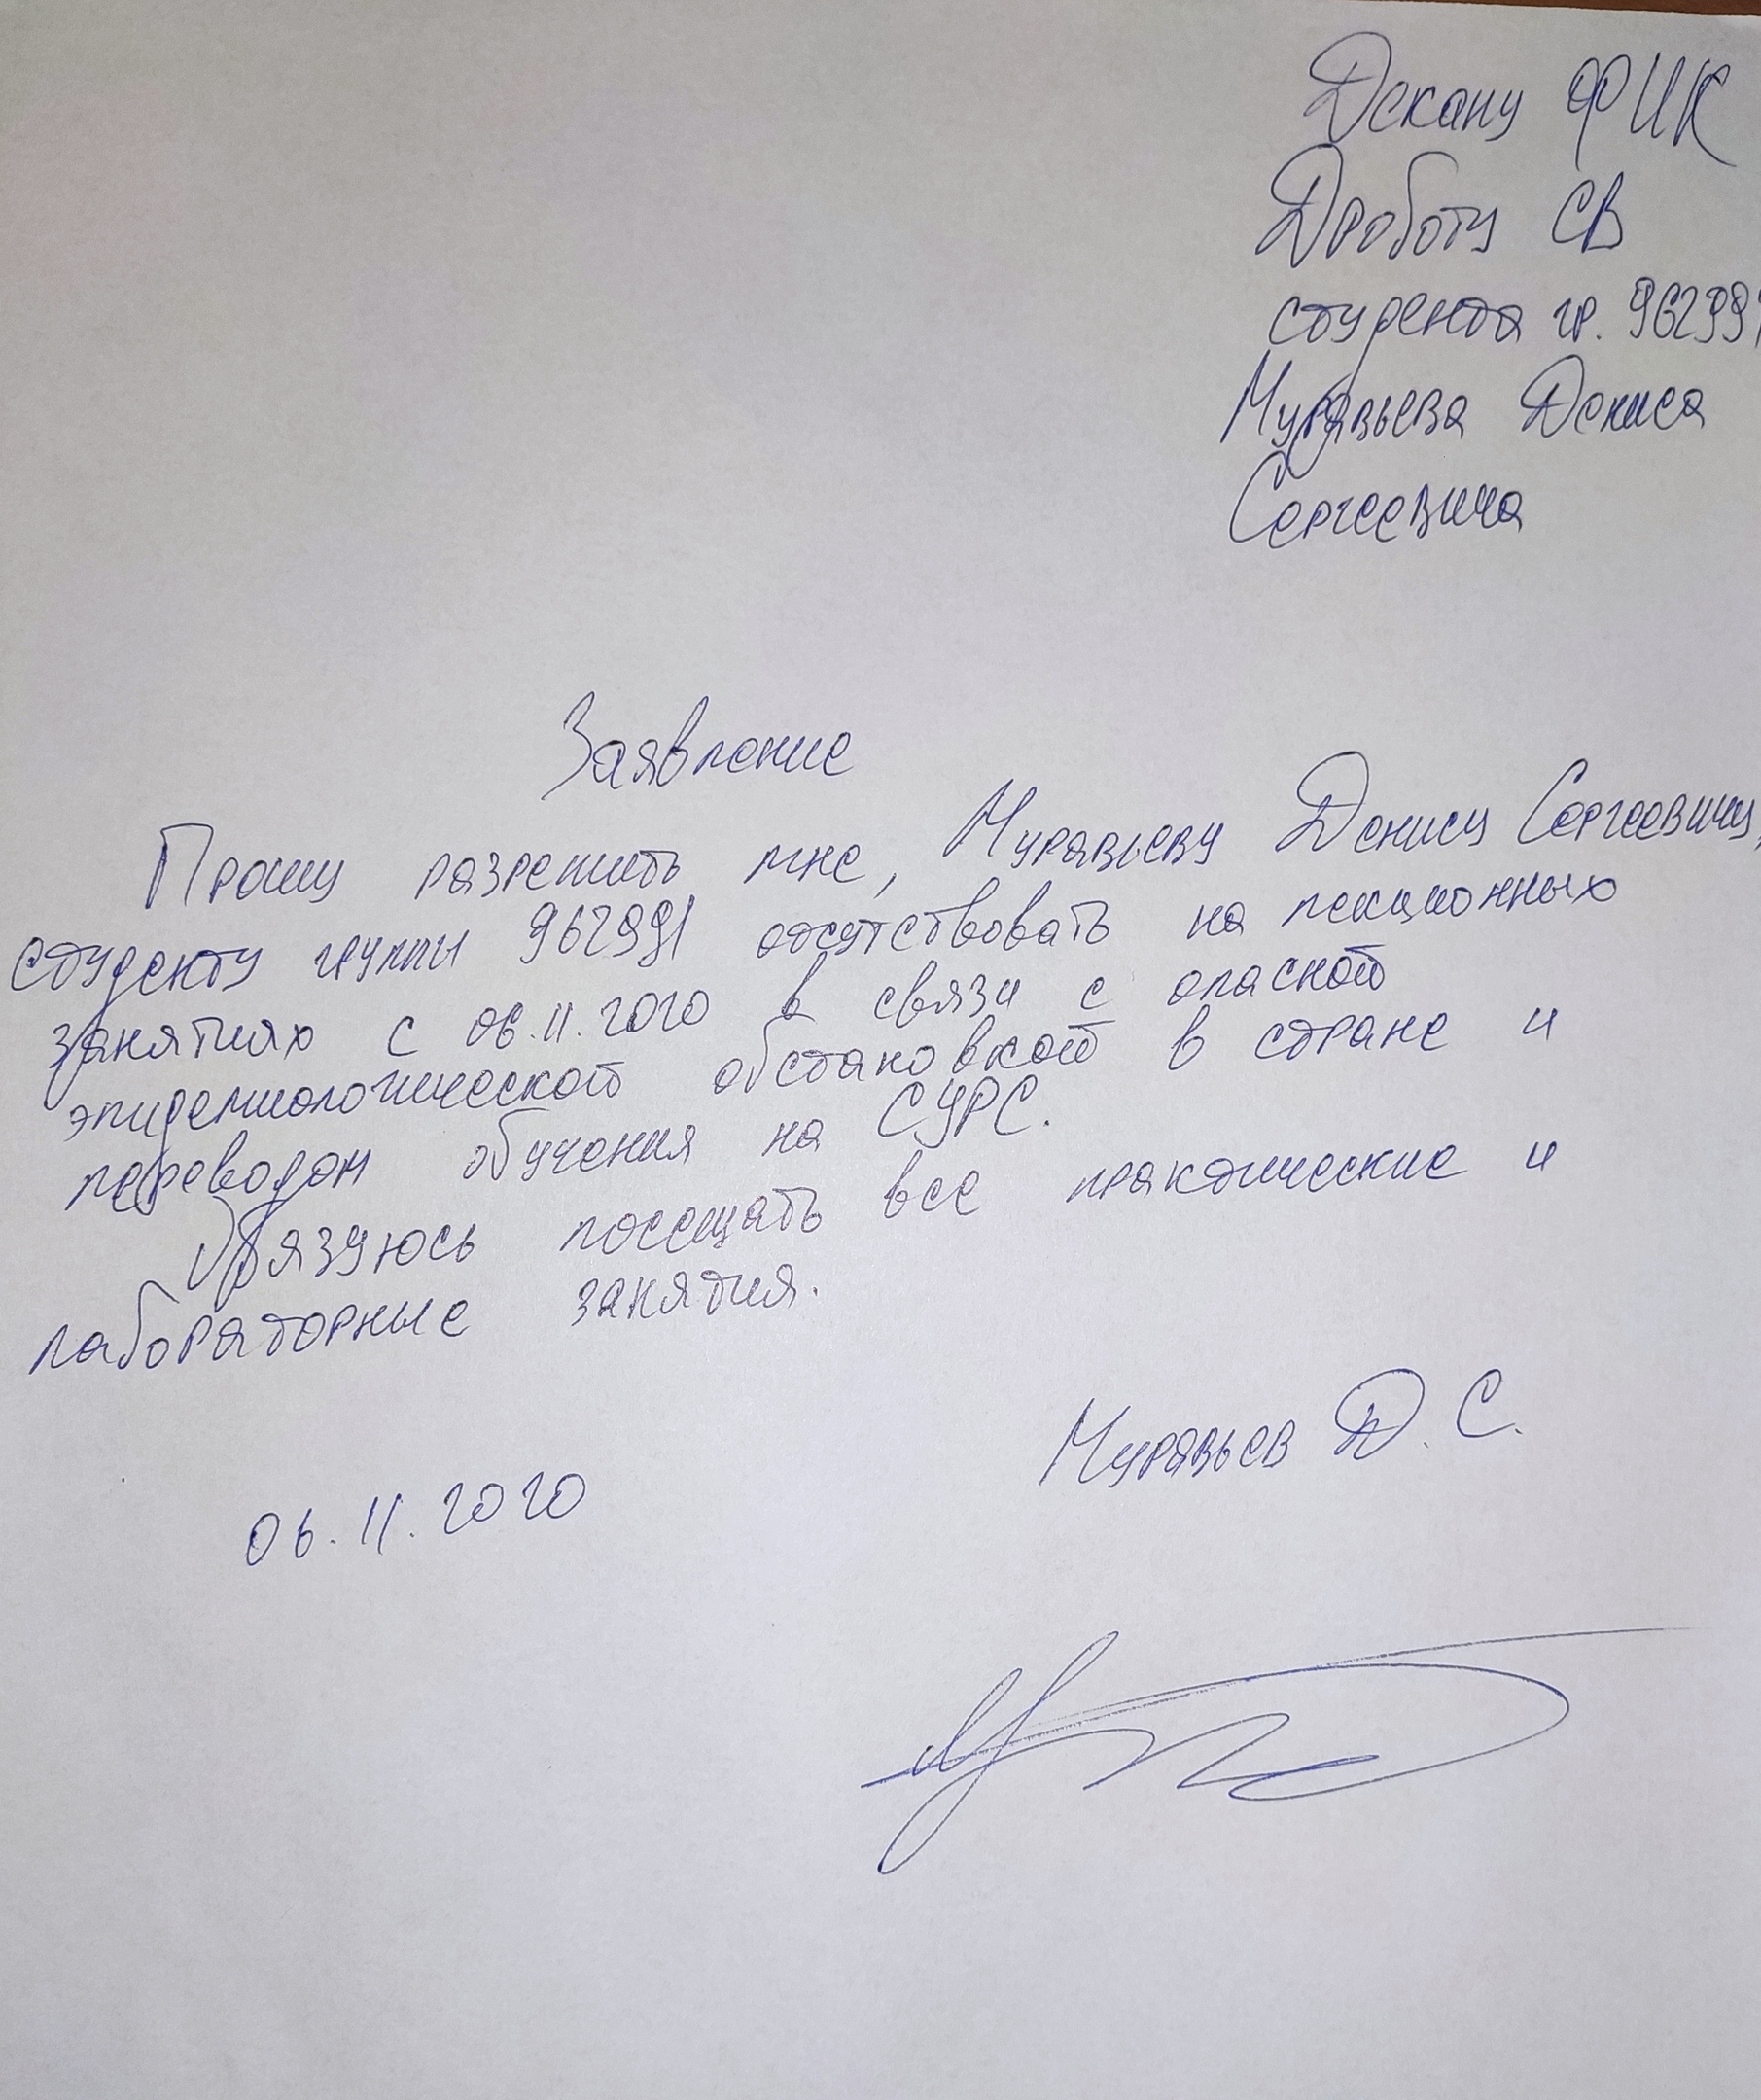 Декану ФИК
Дроботу СВ
студента гр. 962991
Муравьева Дениса
Сергеевича
Заявление
Прошу разрешить мне, Муравьеву Денису Сергеевичу,
студенту группы 962991 отсутствовать на лекционных
занятиях с 06.11.2020 в связи с опасной
эпидемиологической обстановкой в стране и
переводом обучения на СУРС.
Обязуюсь посещать все практические и
лабораторные занятия.
Муравьев Д. С.
06.11.2020